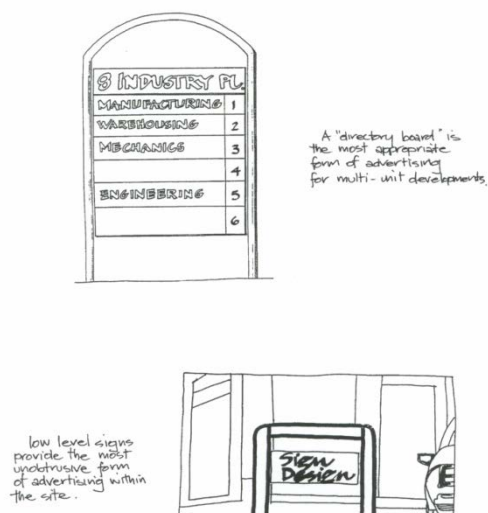 8 INDUSTRY PL.
MANUFACTURING 1
WAREHOUSING 2
MECHANICS 3
4
ENGINEERING 5
6
A "directory board" is
the most appropriate
form of advertising
for multi-unit developments.
low level signs
provide the most
unobtrusive form
of advertising within
the site.
Sign
Design